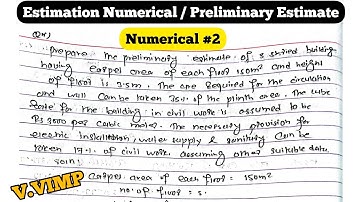 Estimation Numerical / Preliminary Estimate
Numerical #2
prepare the preliminary estimate of 3 storied building
having carpet area of each floor 150m² and height
of floor is 3.5m. The area required for the circulation
and wall can be taken of the plinth area. The cube
rate for the building in civil work is assumed to be
Rs 3000 per cubic meter. The necessary provision for
electric installation, water supply & sanitary can be
taken 17% of civil work. assuming other suitable data.
carpet area of each floor = 150m²
no. of floor = 3.
V.VIMP